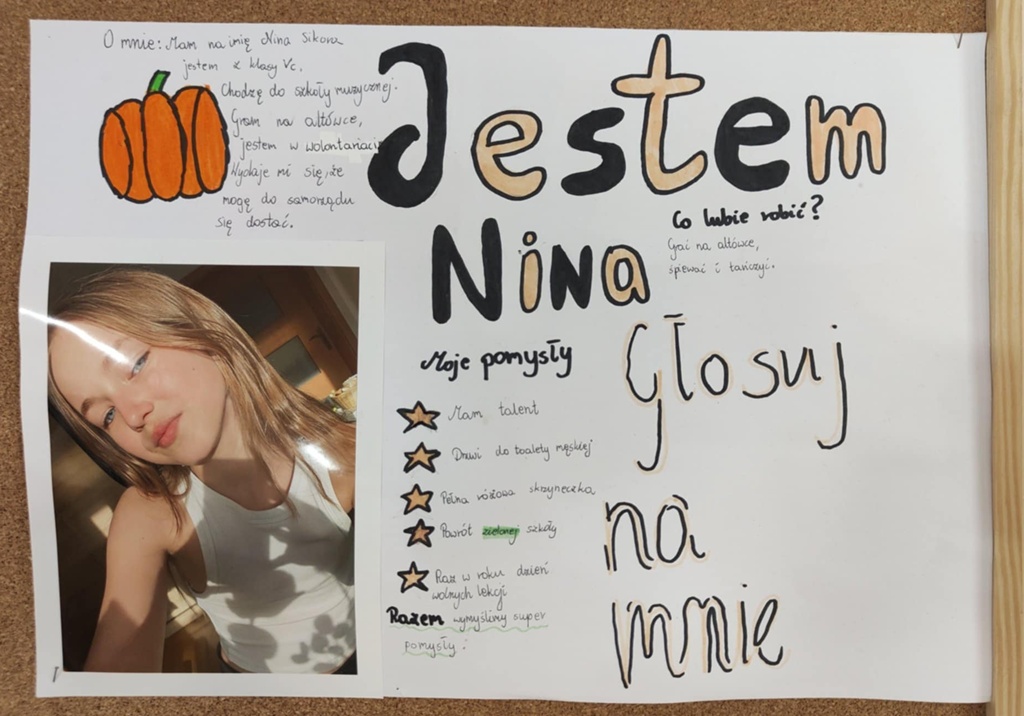 O mnie: Mam na imię Nina Sikora
jestem z klasy Vc.
Chodzę do szkoły muzycznej.
Gram na altówce,
jestem w wolontariacie
Wydaje mi się, że
mogę do samorządu
się dostać.
Jestem
Nina
Co lubie robić?
Grać na altówce,
śpiewać i tańczyć.
Moje pomysły
Mam talent
Drzwi do toalety męskiej
Pełna różowa skrzyneczka
Powrót zielonej szkoły
Raz w roku dzień
wolnych lekcji
Razem wymyślimy super
pomysły :
Głosuj
na
mnie